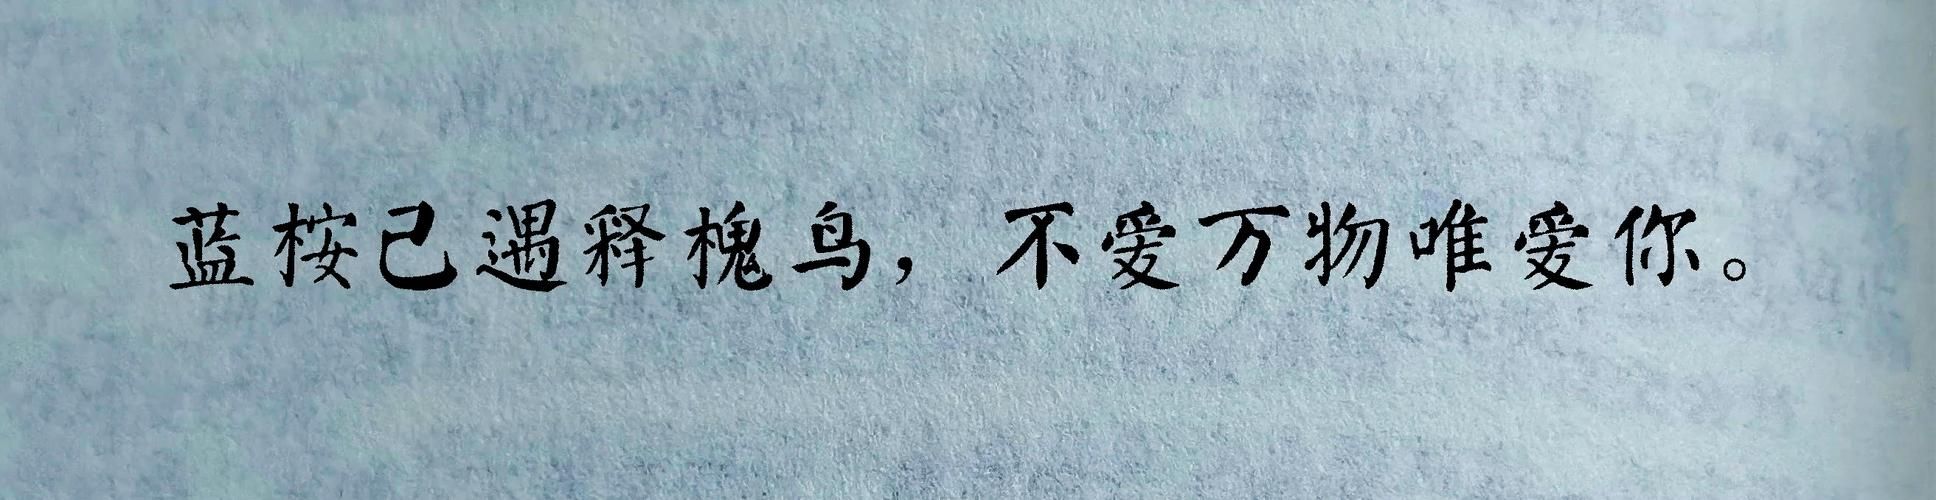 蓝桉已遇释槐鸟，不爱万物唯爱你。